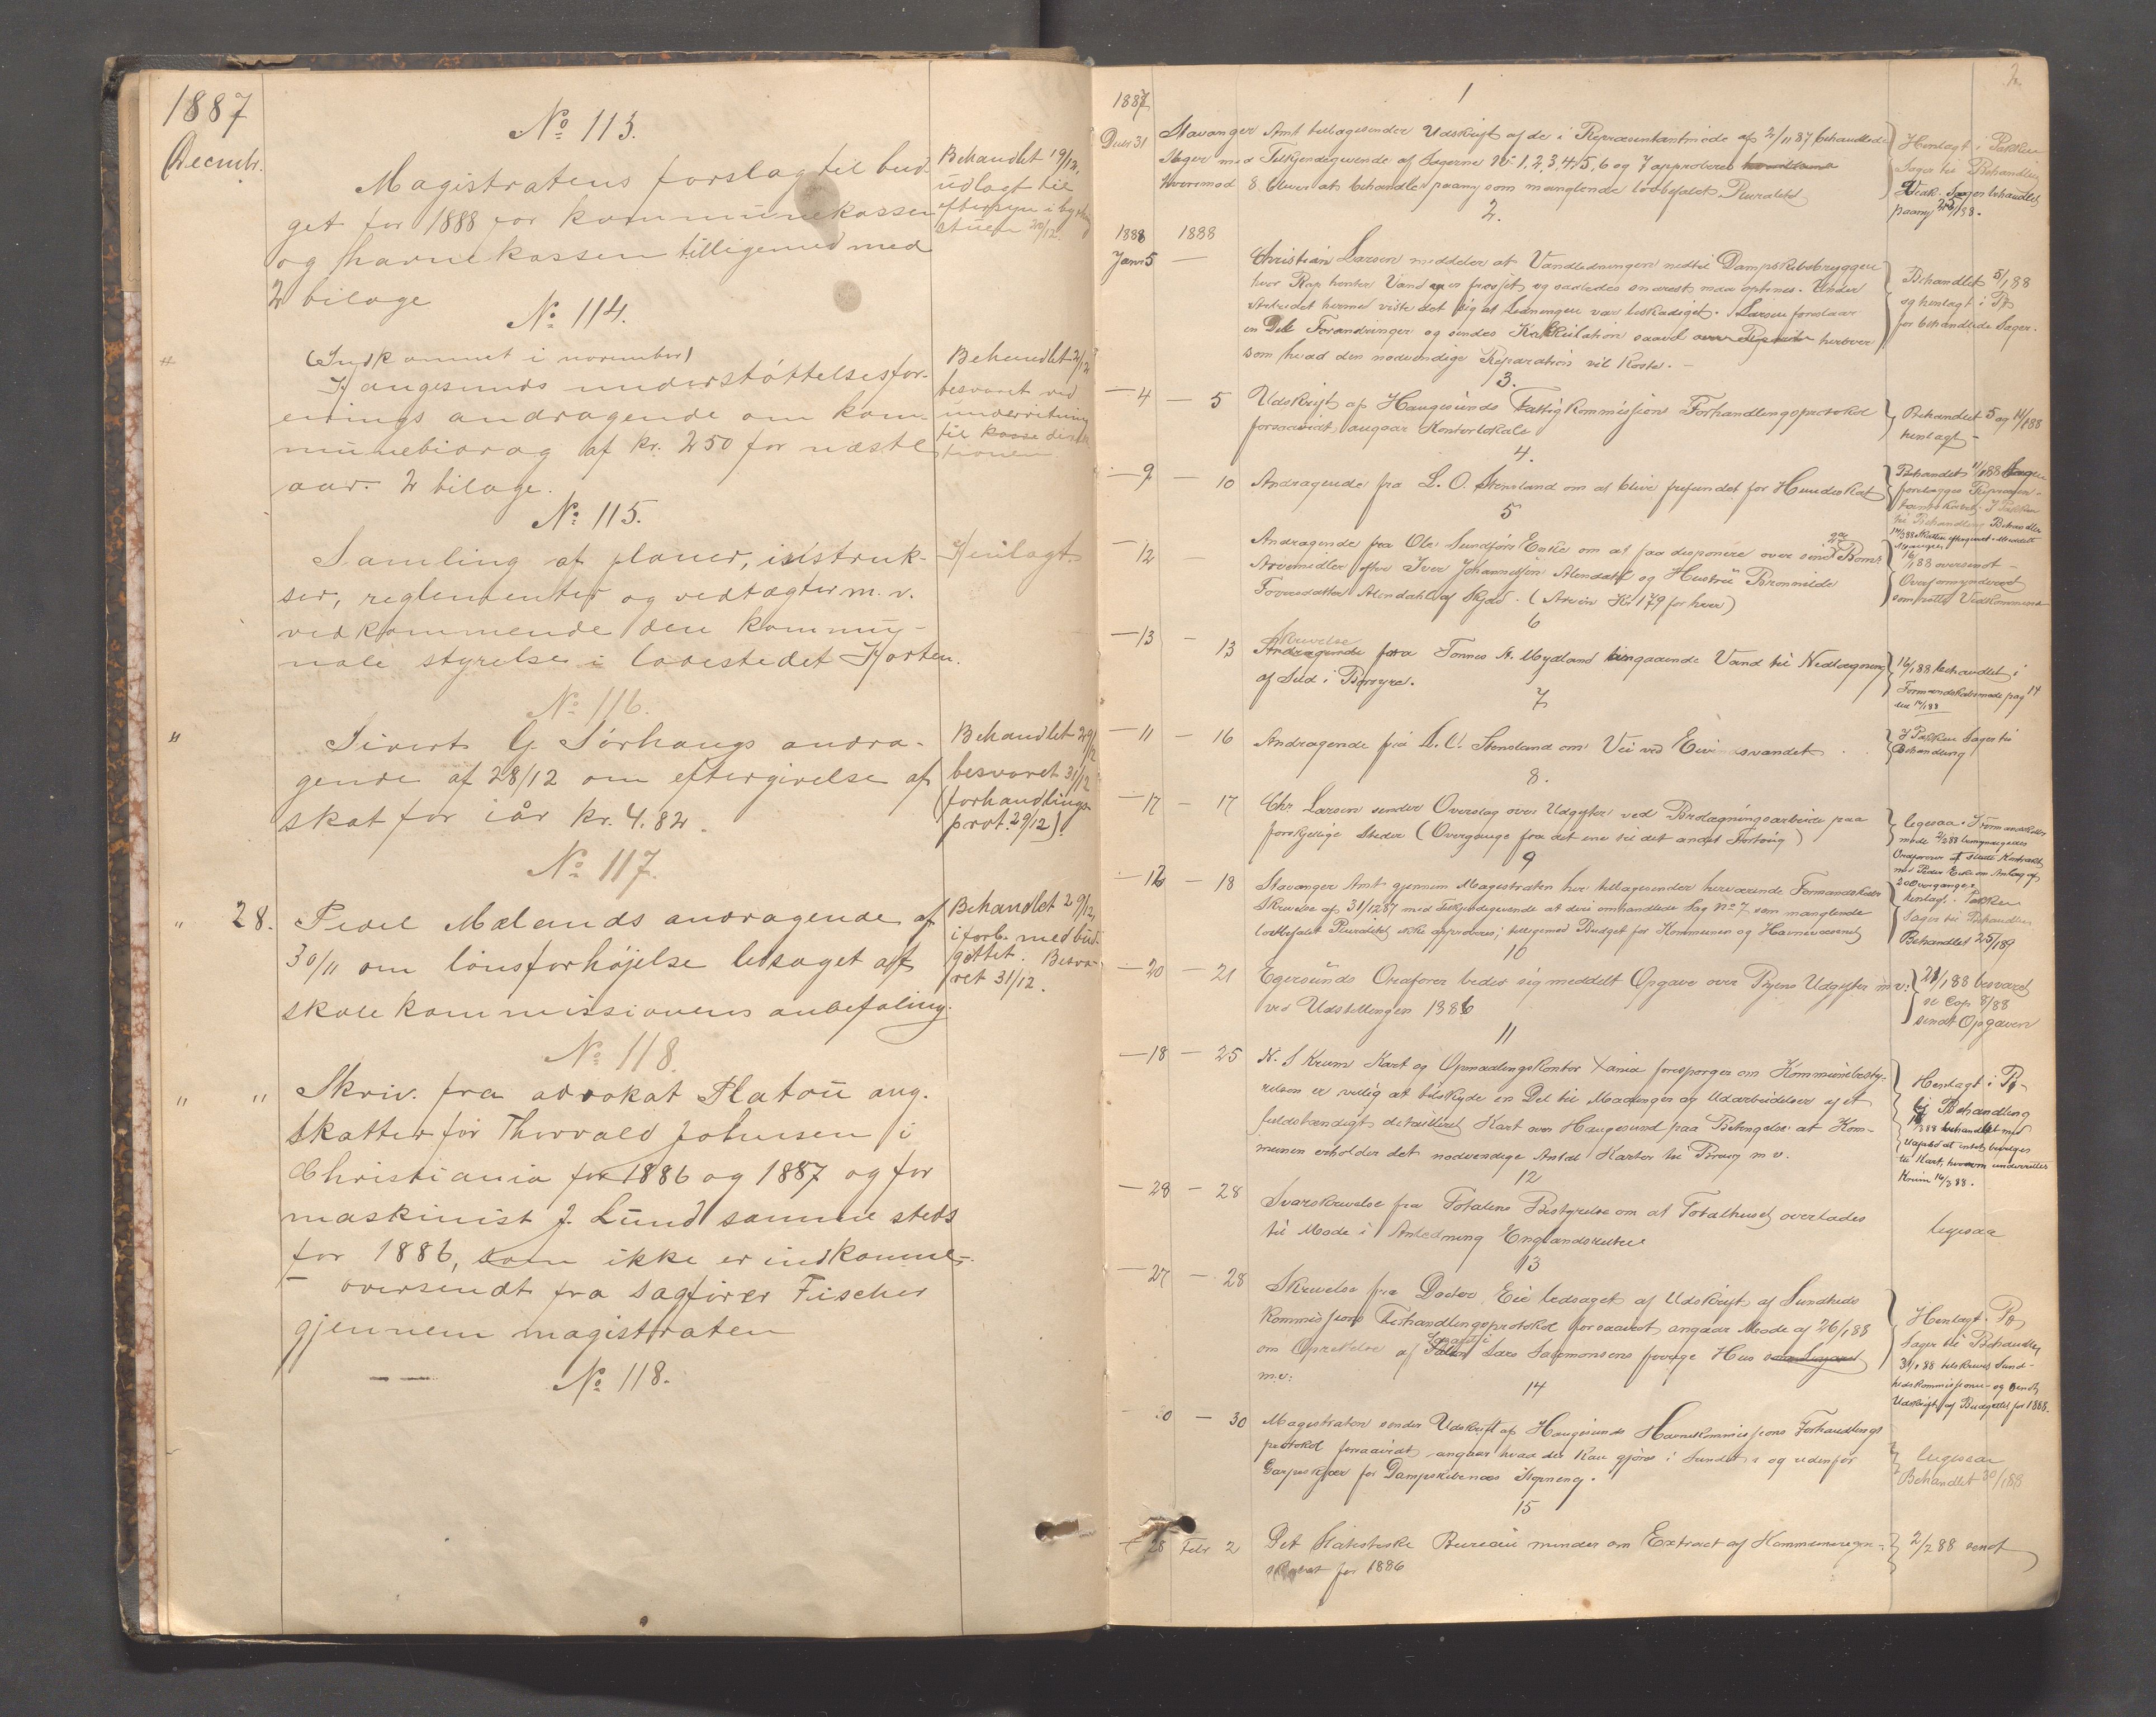 1887
Decmbr.
No 113.
Magistratens forslag til bud-
get for 1888 for kommunekassen
og havnekassen tilligemed med
2 bilage
Behandlet 19/12,
udlagt til
eftersyn i
20/12.
No 114.
(Indkommet i november)
Haugesunds understøttelsesfor-
enings andragende om kom-
munebidrag af kr. 250 for næste
aar. 2 bilage.
Behandlet 2/12
besvaret ved
underretning
til
No 115.
Samling af planer, instruk-
ser, reglementer og vedtægter m. v.
vedkommende den kommu-
nale styrelse i ladestedet Horten.
Henlagt.
No 116.
Sivert G. Sørhaugs andra-
gende af 28/12 om eftergivelse af
skat for iår kr. 4.82.
Behandlet 29/12
besvaret 31/12
(forhandlings-
prot. 29/12).
No 117.
28. Peder Mælands andragende af
30/11 om lønsforhøjelse ledsaget af
skolekommissionens anbefaling.
Behandlet 29/12,
i forb. med bud-
gettet. Besva-
ret 31/12.
No 118.
" " Skriv. fra advokat Platou ang.
skatter for Thorvald Johnsen i
Christiania for 1886 og 1887 og for
maskinist J. Lund samme steds
for 1886, som ikke er indkomne-
- oversendt fra sagfører Fischer
gjennem magistraten
No 118.
2
1887
1
Decbr 31 Stavanger Amt tilbagesender Udskrift af de i Repræsentantmøde af 2/11 87 behandlede
Sager med Tilkjendegivende af Sagerne No 1, 2, 3, 4, 5, 6 og 7 approberes
hvorimod 8 bliver at behandles paany som manglende lovbefalet Pluralitet
Henlagt i Pakken
Sager til Behandling
Sager behandlet
paany
2.
1888 1888
Janr 5 — Christian Larsen meddeler at Vandledningen nedtil Dampskibsbryggen
hvor henter Vand er frosset og saaledes snarest maa optines. Under
Arbeidet hermed viste det sig at Ledningen var beskadiget. Larsen foreslaar
en Del Forandringer og sendes Kalkulation saavel herover
som hvad den nødvendige Reparation vil koste. -
Behandlet 5/1 88
og henlagt i Pk
for behandlede Sager.
3.
— 4 — 5 Udskrift af Haugesunds Fattigkommissions Forhandlingsprotokol
forsaavidt angaar Kontorlokale
Behandlet 5 og 14/1 88
henlagt -
4.
— 9 — 10 Andragende fra L. O. Stensland om at blive frifundet for Hundeskat
Behandlet 11/1 88
forelægges Repræsen-
til Behandling
5
— 12 Andragende fra Ole Sundførs Enke om at faa disponere over sine Børns
Arvemidler efter Iver Johannessen Alendahl og Hustru Bronnilde
Toresdatter Alendahl af Skjold. (Arven Kr 179 for hver)
16/1 88 oversendt -
Overformynderiet
som rette Vedkommende
6
— 13 — 13 Skrivelse fra Tønnes A. Mydland angaaende Vand til Nedlægning
af Sild i
16/1 88 behandlet i
Formandskabsmøde pag 14
7
— 11 — 16 Andragende fra L. O. Stensland om Vei ved Eivindsvandet
I Pakken Sager til
Behandling
8.
— 17 — 17 Chr Larsen sender Overslag over Udgifter ved Brolægningsarbeide paa
forskjellige Steder (Overgange fra det ene til det andet Fortoug)
ligesaa. I Formandskabs-
møde 2/2 88 bemyndigedes
Ordføreren at slutte Kontrakt
9
— 16 — 18 Stavanger Amt gjennem Magistraten her tilbagesender herværende Formandskabs
Skrivelse af 31/12 87 med Tilkjendegivende at den omhandlede Sag No 7 som manglende
lovbefalet Pluralitet ikke approberes; tilligemed Budget for Kommunen og Havnevæsenet
henlagt i Pakken
Sager til Behandling
Behandlet 25/1 89
10
— 20 — 21 Egersunds Ordfører beder sig meddelt Opgave over Byens Udgifter m. v.
ved Udstillingen 1886
21/1 88 besvaret
se Cop. 8/88
sendt Opgaven
11
— 18 — 25 N. S Krum Kart og Opmaalingskontor Xania forespørger om Kommunebesty-
relsen er villig at tilskyde en Del til Maalinger og Udarbeidelser af et
fuldstændigt detailleret Kart over Haugesund paa Betingelse at Kom-
munen erholder det nødvendige Antal Karter til Brug m v.
Henlagt i Pk-
til Behandling
behandlet med
Vaglsd at intet bevilges
til Kart, hvorom underrettes
Krum 16/3 88.
12
— 28 — 28 Svarskrivelse fra Totalens Bestyrelse om at Totalhuset overlades
til Møde i Anledning Englandsruten
ligesaa
13
— 27 — 28 Skrivelse fra Doctor Eie ledsaget af Udskrift af Sundheds
kommissions Forhandlingsprotokol forsaavidt angaar Møde af 26/1 88
om Oprettelse af Lars Salomonsens forrige Hus
m.v:
Henlagt i Pk
Sager til Behandling
31/1 88 tilskrevet Sund-
hedskommissionen og sendt
Udskrift af Budgettet for 1888.
14
30 — 30 Magistraten sender Udskrift af Haugesunds Havnekommissions Forhandlings
protokol forsaavidt angaar hvad der kan gjøres i Sundet i og udenfor
Garpeskjær for Dampskibenes
ligesaa
Behandlet 30/1 88
15
— 28 Febr 2 Det Statistiske Bureau minder om Extract af Kommuneregn-
skabet for 1886
2/2 88 sendt